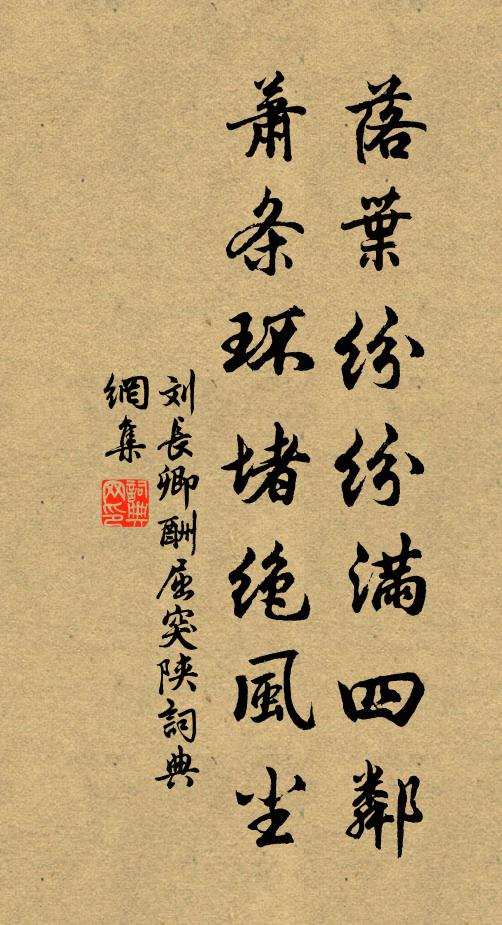 落葉紛紛滿四鄰
蕭条环堵絶風尘
刘長卿酬屈突陝詞典
網集
詞典
网印